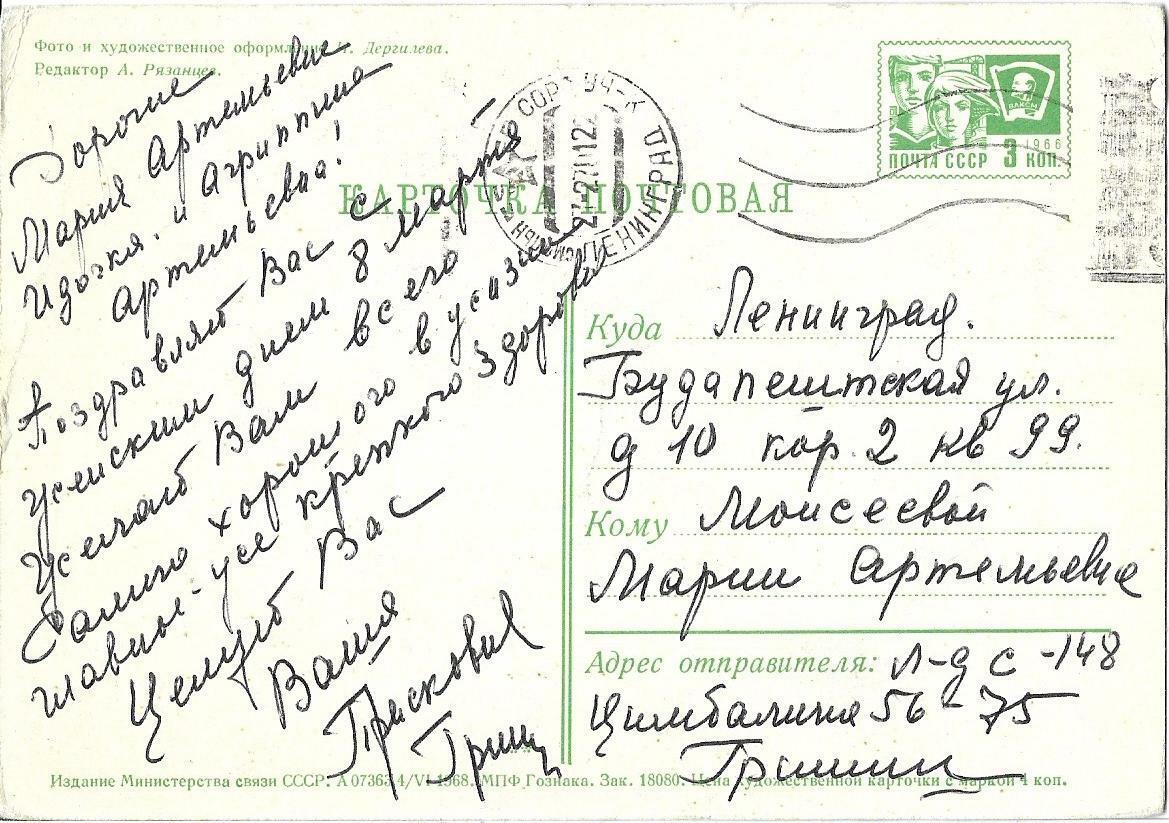 Фото и художественное оформление Дергилева.
Редактор А. Рязанцев.
Дорогие
Мария Артемьевна
Идочка. и Агриппина
Артемьевна!
Поздравляю Вас с
днем 8 Марта
Вам всего
самого хорошего в
главное крепкого здоровья
Целую Вас
Ваша
Прасковия
Гриш
КАРТОЧКА ПОЧТОВАЯ
ЛЕНИНГРАД
ВЛКСМ
1966
ПОЧТА СССР 3 КОП.
Куда Ленинград.
Будапештская ул.
д 10 кор. 2 кв 99.
Кому Моисеевой
Марии Артемьевне
Адрес отправителя: Л-д С-148
Цимбалина 56-75
Гришин
Издание Министерства связи СССР. А07363 4/VI-1968. МПФ Гознака. Зак. 18080. Цена художественной карточки с маркой 4 коп.